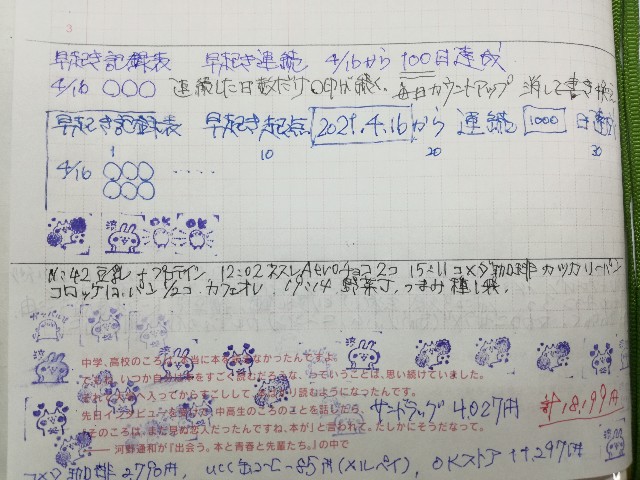 3
早起き記録表 早起き連続 4/16から 100日達成
4/16 ○○○ 連続した日数だけ○印が続く. 毎日カウントアップ 消して書き換え
早起き記録表 早起き起点 2021.4.16 から 連続 1000 日達成
1 10 20 30
4/16 ○○○ ・・・・
○○○
OK OK
11:42 豆乳+プロテイン, 12:02 ネスレAeroチョコ2コ 15:11 コメダ珈琲 カツカリーパン
コロッケ1コ, パン1/2コ カフェオレ 19:14 野菜丁, つまみ種し飛,
中学、高校のころは、本当に本を読まなかったんですよ。
ですね、いつか自分は本をすごく読むだろうな、っていうことは、思い続けていました。
それで大学へ入ってからすこしして、読むようになったんです。
先日インタビューを受けて、中高生のころのことを話したら、
「そのころは、まだ早い恋人だったんですね、本が」と言われて。たしかにそうだなって。
── 河野通和が『出会う。本と青春と先輩たち。』の中で
サンドラッグ 4,027円 計18,199円
コメダ珈琲 2,790円, UCC缶コーヒー 85円(メルペイ), OKストア 11,297円